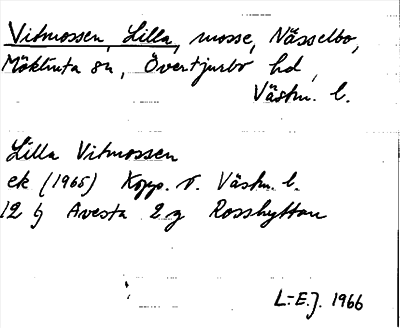 Vitmossen, Lilla, mosse, Nässelbo,
Möklinta sn, Övertjurbo hd,
Västm. l.
Lilla Vitmossen
ek (1965) Kopp. o. Västm. l.
12 G Avesta 2 g Rosshyttan
L.-E.J. 1966